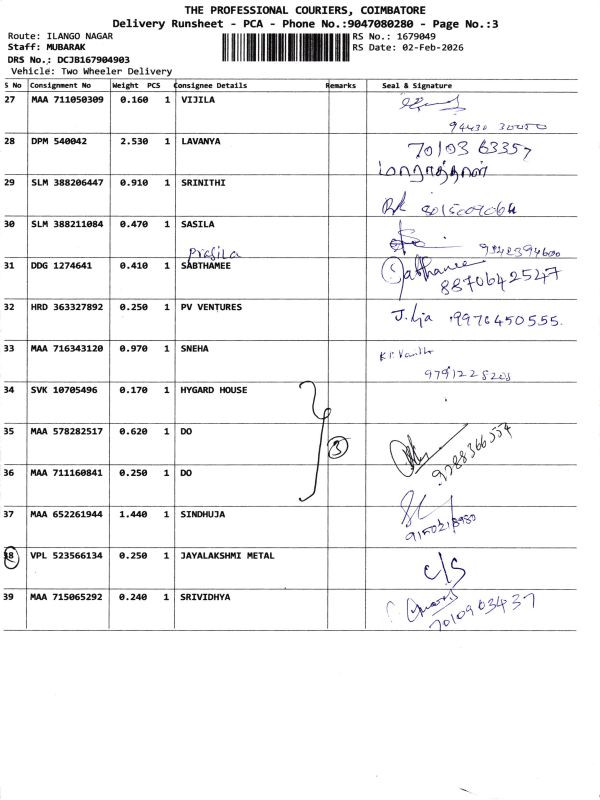 THE PROFESSIONAL COURIERS, COIMBATORE
Delivery Runsheet - PCA - Phone No.:9047080280 - Page No.:3
Route: ILANGO NAGAR
RS No.: 1679049
Staff: MUBARAK
RS Date: 02-Feb-2026
DRS No.: DCJB167904903
Vehicle: Two Wheeler Delivery
S No Consignment No Weight PCS Consignee Details Remarks Seal & Signature
27 MAA 711050309 0.160 1 VIJILA
94430 30050
28 DPM 540042 2.530 1 LAVANYA
70103 63357
29 SLM 388206447 0.910 1 SRINITHI
30 SLM 388211084 0.470 1 SASILA
Prasila
9342394600
31 DDG 1274641 0.410 1 SABTHAMEE
Sabthamee
8870642547
32 HRD 363327892 0.250 1 PV VENTURES
9976450555.
33 MAA 716343120 0.970 1 SNEHA
34 SVK 10705496 0.170 1 HYGARD HOUSE
35 MAA 578282517 0.620 1 DO
3
9788366554
36 MAA 711160841 0.250 1 DO
37 MAA 652261944 1.440 1 SINDHUJA
38 VPL 523566134 0.250 1 JAYALAKSHMI METAL
c/s
39 MAA 715065292 0.240 1 SRIVIDHYA
7010903437